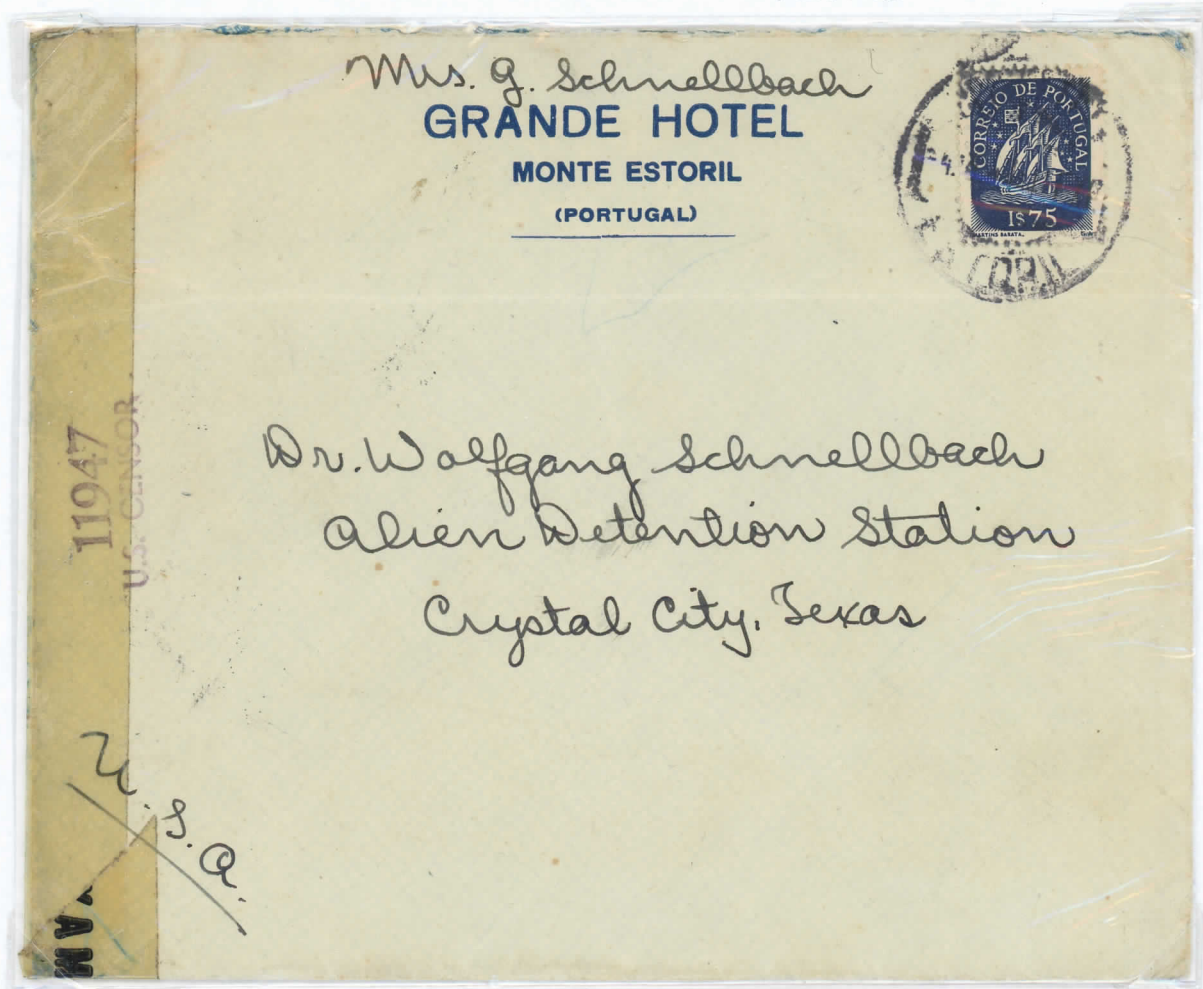 Mrs. G. Schnellbach
GRANDE HOTEL
MONTE ESTORIL
(PORTUGAL)
CORREIO DE PORTUGAL
1$75
MARTINS BARATA.
Dr. Wolfgang Schnellbach
Alien Detention Station
Crystal City, Texas
U.S.A.
11947
U.S. CENSOR